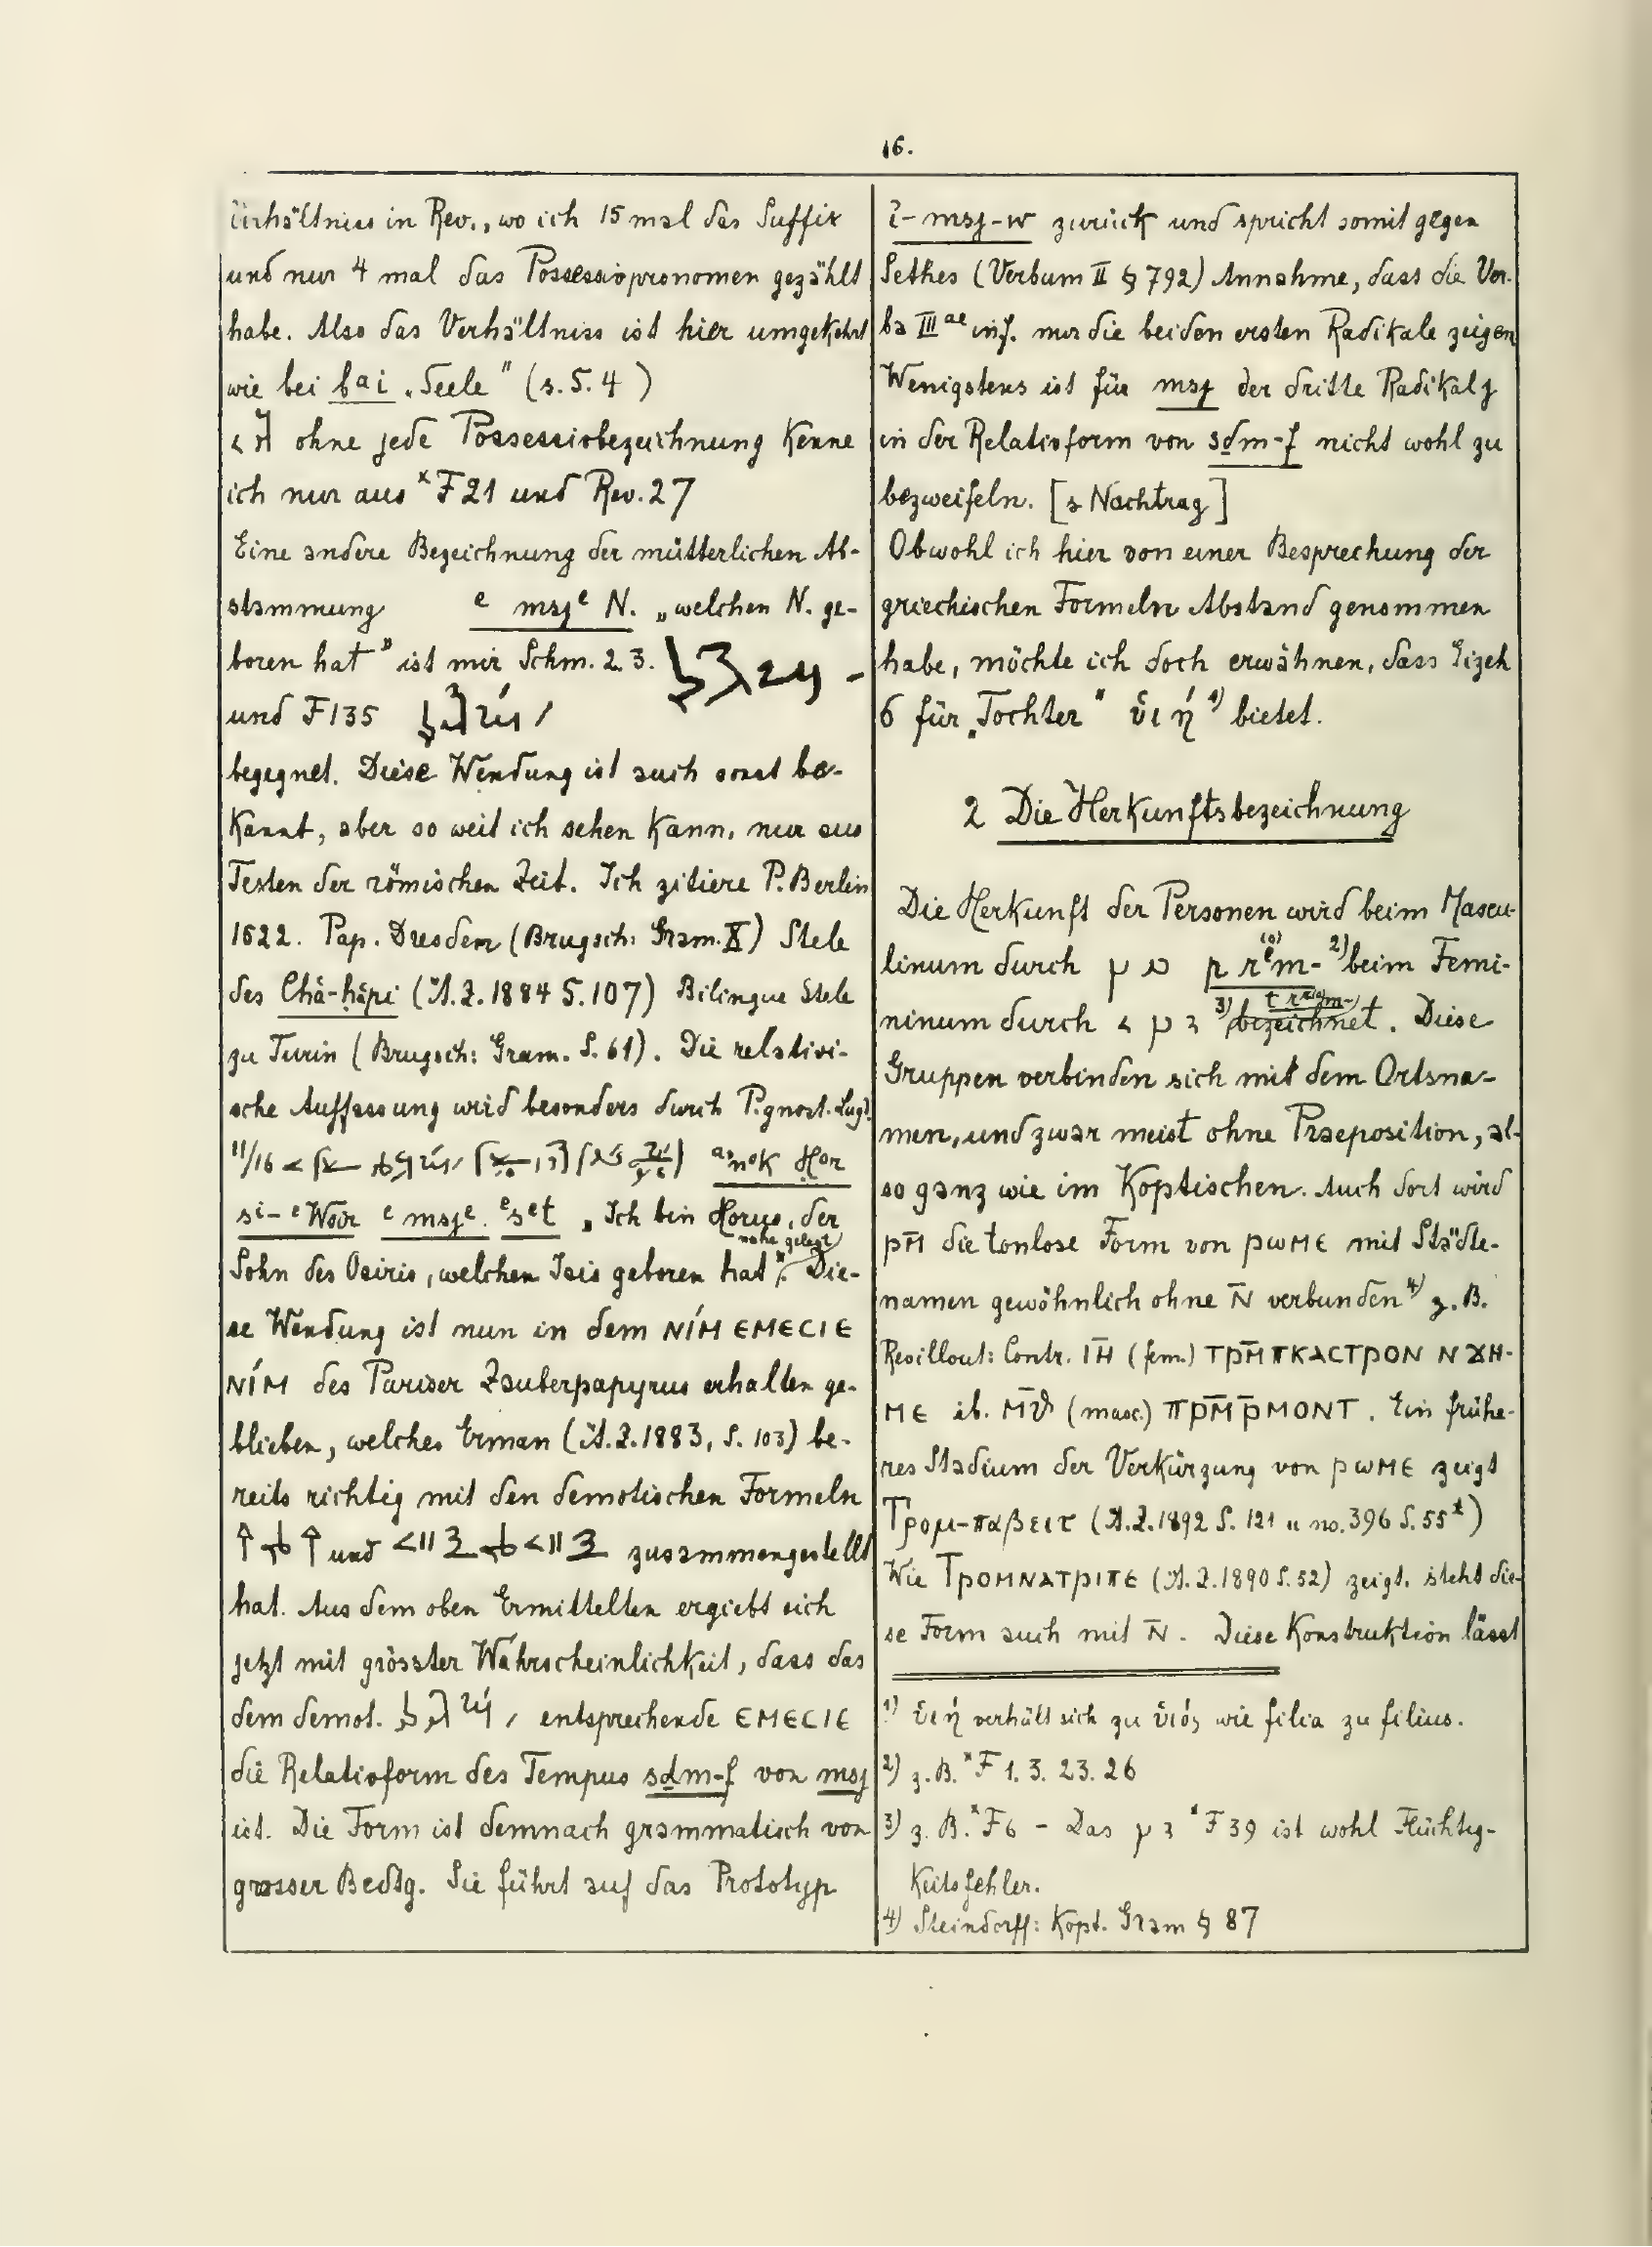 16.
Verhältniss in Rev., wo ich 15 mal das Suffix
und nur 4 mal das Possessivpronomen gezählt
habe. Also das Verhältniss ist hier umgekehrt
wie bei bai „Seele" (s. S. 4)
ohne jede Possessivbezeichnung kenne
ich nur aus *F21 und Rev. 27
Eine andere Bezeichnung der mütterlichen Ab-
stammung e msje N. „welchen N. ge-
boren hat" ist mir Schm. 2. 3.
und F 135
begegnet. Diese Wendung ist auch sonst be-
kannt, aber so weit ich sehen kann, nur aus
Texten der römischen Zeit. Ich zitiere P. Berlin
1522. Pap. Dresden (Brugsch: Gram. X) Stele
des Chā-hāpi (Ä.Z. 1884 S. 107) Bilingue Stele
zu Turin (Brugsch: Gram. S. 61). Die relativi-
sche Auffassung wird besonders durch P. gnost. Lugd.
11/16 anok Hor
si-eWsir e msje. eset „Ich bin Horus, der
Sohn des Osiris, welchen Isis geboren hat" nahe gelegt. Die-
se Wendung ist nun in dem ΝΊΜ ΕΜΕCΙΕ
ΝΊΜ des Pariser Zauberpapyrus erhalten ge-
blieben, welches Erman (Ä.Z. 1883, S. 103) be-
reits richtig mit den demotischen Formeln
und zusammengestellt
hat. Aus dem oben Ermittelten ergiebt sich
jetzt mit grösster Wahrscheinlichkeit, dass das
dem demot. entsprechende ΕΜΕCΙΕ
die Relativform des Tempus sḏm-f von msj
ist. Die Form ist demnach grammatisch von
grosser Bedtg. Sie führt auf das Prototyp
ἰ-msj-w zurück und spricht somit gegen
Sethes (Verbum II § 792) Annahme, dass die Ver-
ba III ae inf. nur die beiden ersten Radikale zeigen
Wenigstens ist für msj der dritte Radikal j
in der Relativform von sḏm-f nicht wohl zu
bezweifeln. [s Nachtrag]
Obwohl ich hier von einer Besprechung der
griechischen Formeln Abstand genommen
habe, möchte ich doch erwähnen, dass Gizeh
6 für „Tochter" ὑιή 1) bietet.
2 Die Herkunftsbezeichnung
Die Herkunft der Personen wird beim Mascu-
linum durch p r(o)em- 2) beim Femi-
ninum durch 3) bezeichnet. Diese
Gruppen verbinden sich mit dem Ortsna-
men, und zwar meist ohne Praeposition, al-
so ganz wie im Koptischen. Auch dort wird
ⲣⲙ̄ die tonlose Form von ⲣⲱⲙⲉ mit Städte-
namen gewöhnlich ohne ⲛ̄ verbunden 4) z. B.
Revillout: Contr. ⲓⲏ̄ (fem.) ⲧⲣⲙ̄ⲡⲕⲁⲥⲧⲣⲟⲛ ⲛϫⲏ-
ⲙⲉ ib. ⲙ̄ⲑ (masc.) ⲡⲣⲙ̄ⲣ̄ⲙⲟⲛⲧ. Ein frühe-
res Stadium der Verkürzung von ⲣⲱⲙⲉ zeigt
Τρομι-παβειτ (Ä.Z. 1892 S. 121 u no. 396 S. 55*)
Wie ⲧⲣⲟⲙⲛⲁⲧⲣⲓⲡⲉ (Ä.Z. 1890 S. 52) zeigt, steht die-
se Form auch mit ⲛ̄. Diese Konstruktion lässt
1) ὑιή verhält sich zu ὑιός wie filia zu filius.
2) z. B. *F 1. 3. 23. 26
3) z. B. *F6 - Das *F39 ist wohl Flüchtig-
keitsfehler.
4) Steindorff: Kopt. Gram § 87